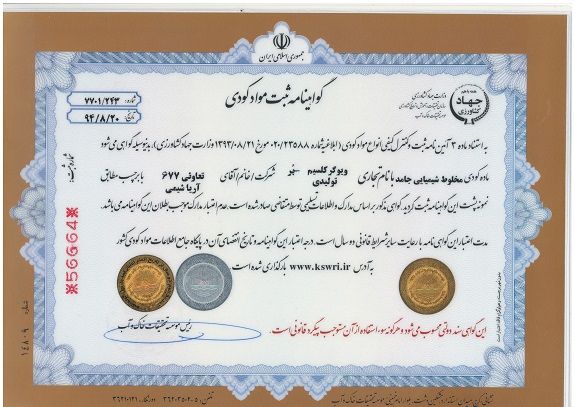 جمهوری اسلامی ایران
گواهینامه ثبت مواد کودی
شماره: ۷۷۰۱/۲۴۳
تاریخ: ۹۴/۸/۲۰
وزارت جهاد کشاورزی
سازمان تحقیقات، آموزش و ترویج کشاورزی
موسسه تحقیقات خاک و آب
جهاد کشاورزی
به استناد ماده ۳ آئین نامه ثبت و کنترل کیفی انواع مواد کودی (ابلاغیه شماره ۰۲۰/۲۳۵۸۸ مورخ ۱۳۹۳/۰۸/۲۱ وزارت جهاد کشاورزی)، بدینوسیله گواهی می شود
ماده کودی مخلوط شیمیایی جامد با نام تجاری ویوگر کلسیم بُر تولیدی شرکت/خانم/آقای تعاونی ۶۷۷ آریا شیمی با برچسب مطابق
نمونه پشت این گواهینامه ثبت گردید. گواهی مذکور بر اساس مدارک و اطلاعات تسلیمی توسط متقاضی صادر شده است. عدم اعتبار مدارک موجب بطلان این گواهینامه می باشد.
مدت اعتبار این گواهی نامه با رعایت سایر شرایط قانونی دو سال است. درجه اعتبار این گواهینامه و تاریخ انقضای آن در پایگاه جامع اطلاعات مواد کودی کشور
به آدرس www.kswri.ir بارگذاری شده است
رئیس موسسه تحقیقات خاک و آب
این گواهی سند دولتی محسوب می شود و هرگونه سوء استفاده از آن مستوجب پیگرد قانونی است.
شماره ثبت:
※56664※
شماره ۱۴۸۰۹
موسسه تحقیقات خاک و آب
تلفن: ۵-۳۶۲۰۲۵۰ دورنگار: ۳۶۲۱۰۱۲۱